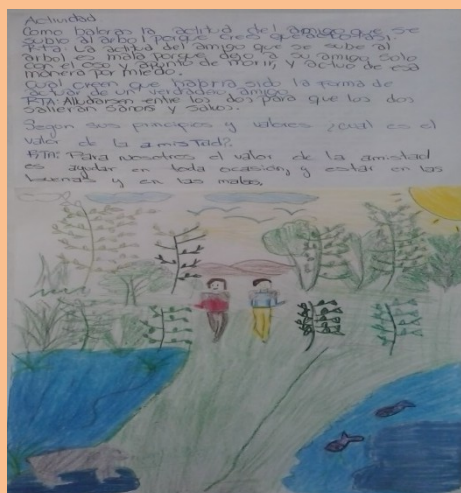 Actividad
Como baloras la actitud del amigo que se
subio al arbol porque crees que actuo asi.
Rta: La actitud del amigo que se sube al
arbol es mala porque dejo a su amigo solo
con el oso y apunto de morir, y actuo de esa
manera por miedo.
Cual creen que habria sido la forma de
actuar de un verdadero amigo.
RTA: Alludarsen entre los dos para que los dos
salieran sanos y salvos.
Segun sus principios y valores ¿cual es el
valor de la amistad?.
RTA: Para nosotros el valor de la amistad
es ayudar en toda ocasión, y estar en las
buenas y en las malas.